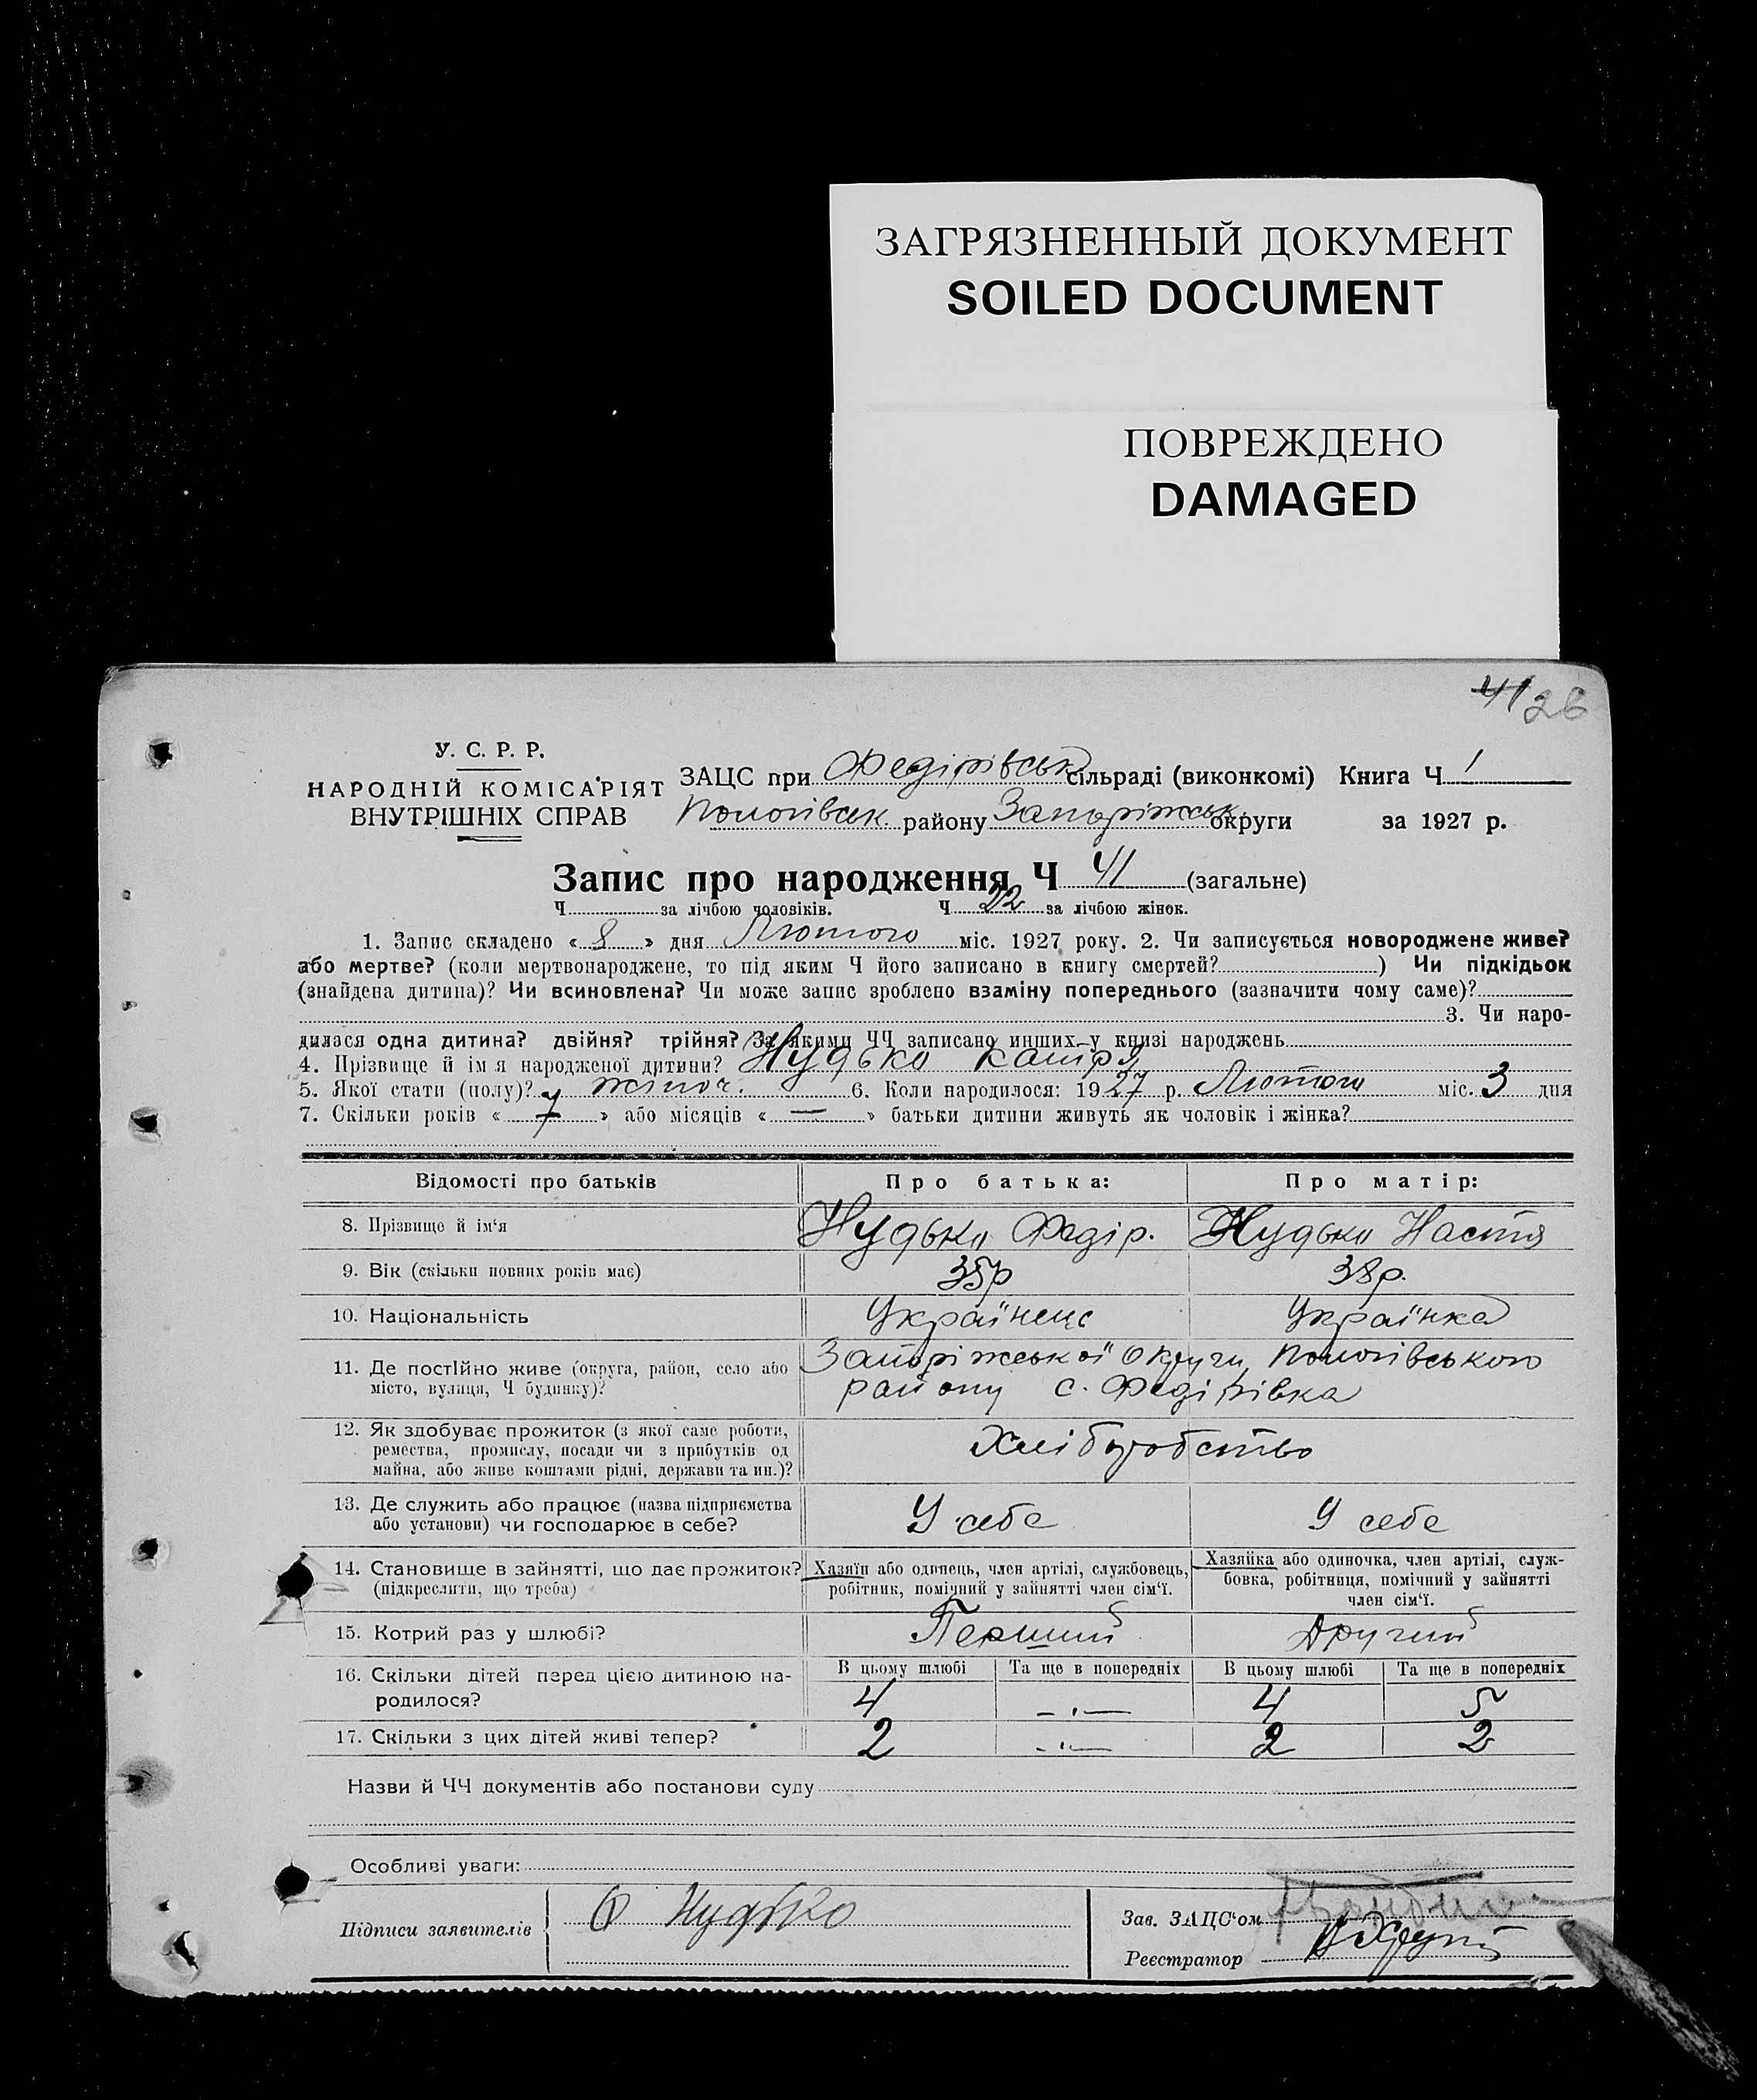 ЗАГРЯЗНЕННЫЙ ДОКУМЕНТ
SOILED DOCUMENT
ПОВРЕЖДЕНО
DAMAGED
41 26
У. С. Р. Р.
НАРОДНІЙ КОМІСАРІЯТ
ВНУТРІШНІХ СПРАВ
ЗАЦС при Федірівськ сільраді (виконкомі) Книга Ч 1
Пологівськ району Запоріжськ округи за 1927 р.
Запис про народження Ч 41 (загальне)
Ч за лічбою чоловіків. Ч 22 за лічбою жінок.
1. Запис складено « 8 » дня Лютого міс. 1927 року. 2. Чи записується новороджене живе?
або мертве? (коли мертвонароджене, то під яким Ч його записано в книгу смертей? ) Чи підкідьок
(знайдена дитина)? Чи всиновлена? Чи може запис зроблено взаміну попереднього (зазначити чому саме)?
3. Чи наро-
дилася одна дитина? двійня? трійня? За якими ЧЧ записано инших у книзі народжень
4. Прізвище й ім я народженої дитини? Нудько
5. Якої стати (полу)? жіноч. 6. Коли народилося: 1927 р. Лютого міс. 3 дня
7. Скільки років « 7 » або місяців « — » батьки дитини живуть як чоловік і жінка?
Відомості про батьків Про батька: Про матір:
8. Прізвище й ім'я Нудько Федір. Нудько Настя
9. Вік (скільки повних років має) 35р 38р.
10. Національність Українець Українка
11. Де постійно живе (округа, район, село або Запоріжської Округи, Пологівського
місто, вулиця, Ч будинку)? району с. Федірівка
12. Як здобуває прожиток (з якої саме роботи, Хліборобство
ремества, промислу, посади чи з прибутків од
майна, або живе коштами рідні, держави та ин.)?
13. Де служить або працює (назва підприємства У себе У себе
або установи) чи господарює в себе?
14. Становище в зайнятті, що дає прожиток? Хазяїн або одинець, член артілі, службовець, Хазяйка або одиночка, член артілі, служ-
(підкреслити, що треба) робітник, помічний у зайнятті член сім'ї. бовка, робітниця, помічний у зайнятті
член сім'ї.
15. Котрий раз у шлюбі? Перший Другий
16. Скільки дітей перед цією дитиною на- В цьому шлюбі Та ще в попередніх В цьому шлюбі Та ще в попередніх
родилося? 4 — 4 5
17. Скільки з цих дітей живі тепер? 2 — 2 2
Назви й ЧЧ документів або постанови суду
Особливі уваги:
Підписи заявителів Ф Нудько Зав. ЗАЦС'ом
Реєстратор